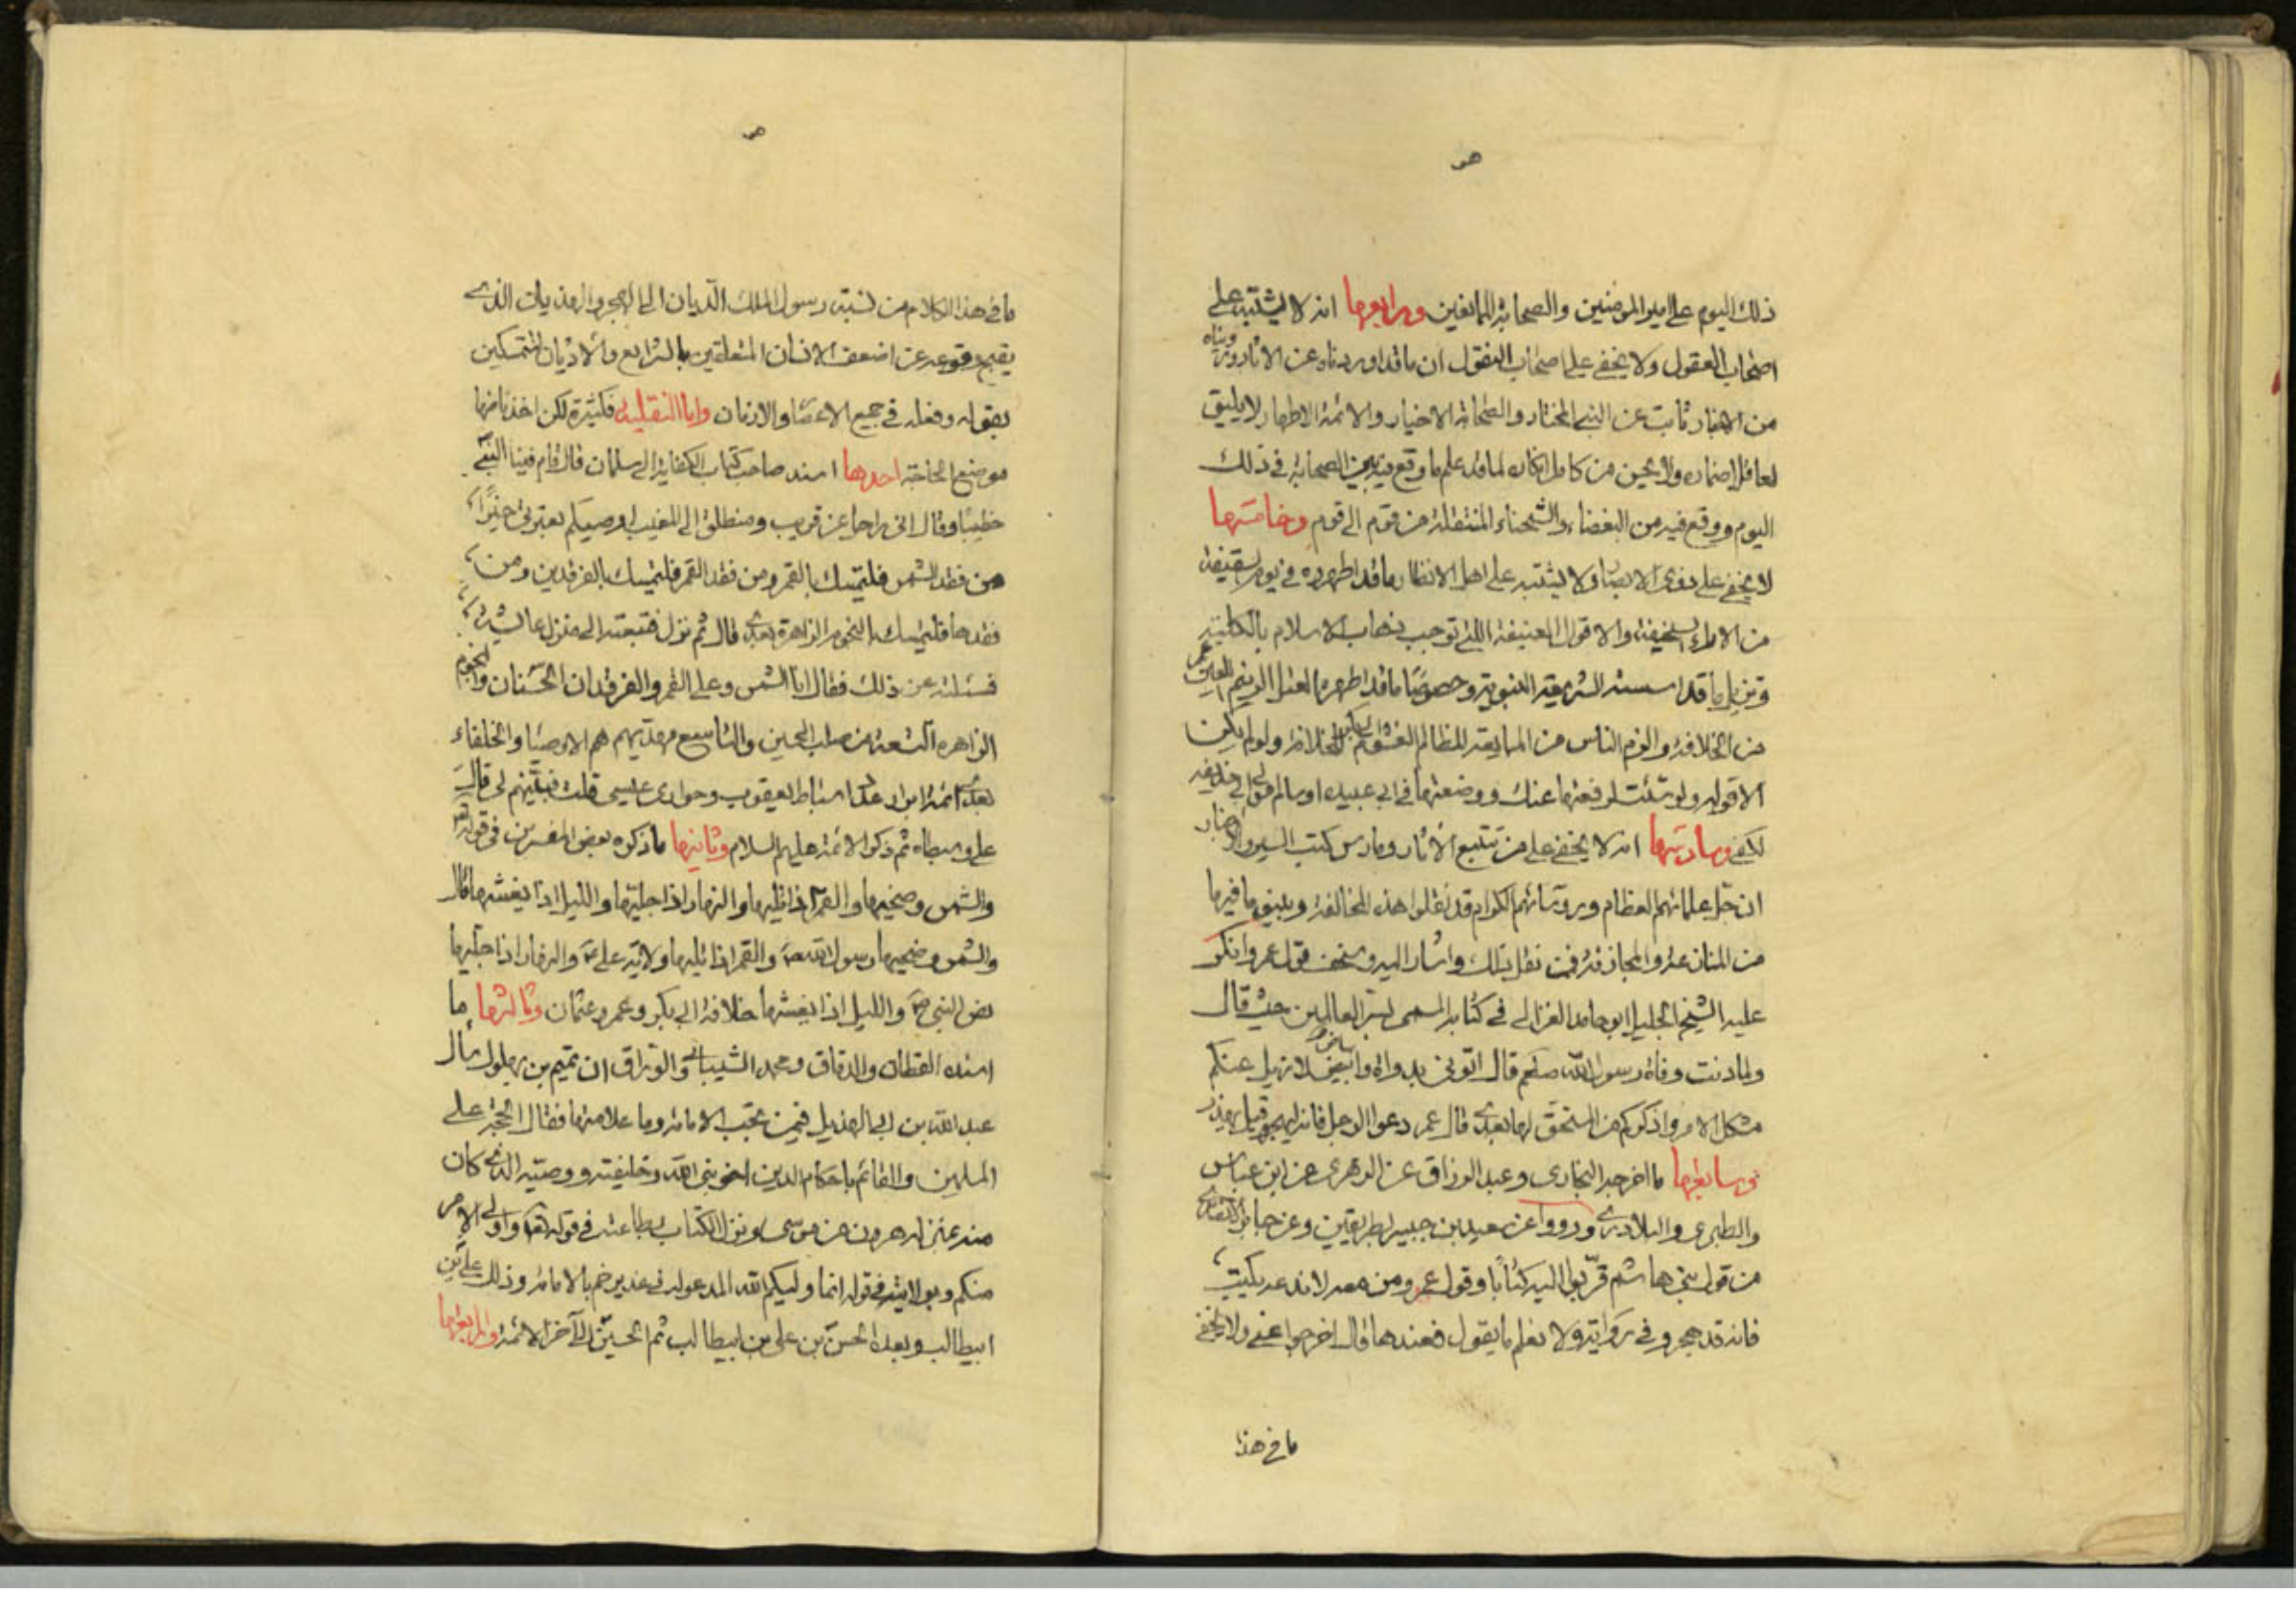 هو
ذلك اليوم على امير المؤمنين والصحابة المانعين ورابعها انه لا يشتبه على
اصحاب العقول ولا يخفى على اصحاب النقول ان ما قد اوردناه عن الاثار ورويناه
من الاخبار ثابت عن النبي المختار والصحابة الاخيار والائمة الاطهار لا يليق
لعاقل اضماره ولا يحسن من كامل انكاره لما قد علم ما وقع فيه بين الصحابة في ذلك
اليوم ووقع فيه من البغضاء والشحناء المنتقلة من قوم الى قوم وخامسها
لا يخفى على ذوي الابصار ولا يشتبه على اهل الانظار ما قد اظهروه في يوم سقيفة
من الاراء السخيفة والاقوال العنيفة اللتي توجب ذهاب الاسلام بالكلية
وتزيل ما قد اسسته الشريعة النبوية وخصوصا ما قد اظهره العتل الزنيم اللعين عمر
من الخلافة والزم الناس من المبايعة للظالم الغشوم ابي بكر للخلافة ولو لم يكن
الا قوله ولو شئت لرفعتها عنك ووضعتها في ابي عبيده او سالم مولى ابي حذيفه
لكفى وسادستها انه لا يخفى على من تتبع الاثار ومارس كتب السير والاخبار
ان جل علمائهم العظام ورؤسائهم الكرام قد نقلوا هذه المخالفة وبينوا ما فيها
من المنازعة والمجازفة فمن نقل تلك واشار اليه وسخف قول عمر وانكر
عليه الشيخ الجليل ابو حامد الغزالي في كتابه المسمى بسر العالمين حيث قال
ولما دنت وفاة رسول الله صلعم قال اتوني بدواة وبياض لازيل عنكم
مشكل الامر واذكركم من المستحق لها بعدي قال عمر دعوا الرجل فانه ليهجر وقيل يهذر
وسابعها ما اخرجه البخاري وعبد الرزاق عن الزهري عن ابن عباس
والطبري والبلاذري ورووا عن سعيد بن جبير بطريقين وعن جابر الانصاري
من قول بني هاشم قربوا اليه كتابا وقول عمر ومن معه لا ندعه يكتب
فانه قد هجر وفي رواية ولا نعلم ما يقول فعندها قال اخرجوا عني ولا يخفى
ما في هذا
هو
ما في هذا الكلام من نسبة رسول الملك الديان الى الهجر والهذيان الذي
يقبح وقوعه عن اضعف الانسان المتعلقين بالشرايع والاديان المتمسكين
بقوله وفعله في جميع الاعصار والازمان واما النقلية فكثيرة لكن اخذنا منها
موضع الحاجة احدها اسند صاحب كتاب الكفاية الى سلمان قال قام فينا النبي
خطيبا وقال اني راحل عن قريب ومنطلق الى المغيب اوصيكم بعترتي خيرا
من فقد الشمس فليتمسك بالقمر ومن فقد القمر فليتمسك بالفرقدين ومن
فقدهما فليتمسك بالنجوم الزاهرة بعدي قال ثم نزل فتبعته الى منزل عائشة
فسئلته عن ذلك فقال انا الشمس وعلي القمر والفرقدان الحسنان والنجوم
الزاهره التسعة من صلب الحسين والتاسع مهديهم هم الاوصياء والخلفاء
بعدي ائمة ابرار عدد اسباط يعقوب وحواري عيسى قلت فبينهم لي قال
علي وسبطاه ثم ذكر الائمة عليهم السلام وثانيها ما ذكره بعض المفسرين في قوله تعالى
والشمس وضحيها والقمر اذا تليها والنهار اذا جليها والليل اذا يغشيها قال
والشمس وضحيها رسول الله ص والقمر اذا تليها ولاية علي ع والنهار اذا جليها
نص النبي ص والليل اذا يغشيها خلافة ابي بكر وعمر وعثمان وثالثها ما
اسنده القطان والدقاق ومحمد الشيباني والوراق ان تميم بن بهلول سأل
عبد الله بن ابي الهذيل فيمن تجب الامامة وما علامتها فقال الحجة على
المسلمين والقائم باحكام الدين اخو نبي الله وخليفته ووصيه الذي كان
منه بمنزلة هرون من موسى ونزل الكتاب بطاعته في قوله تعالى واولي الامر
منكم وبولايته في قوله انما وليكم الله المدعو له في غدير خم بالامامة وذلك علي بن
ابيطالب وبعده الحسن بن علي بن ابيطالب ثم الحسين الى آخر الائمة ورابعها